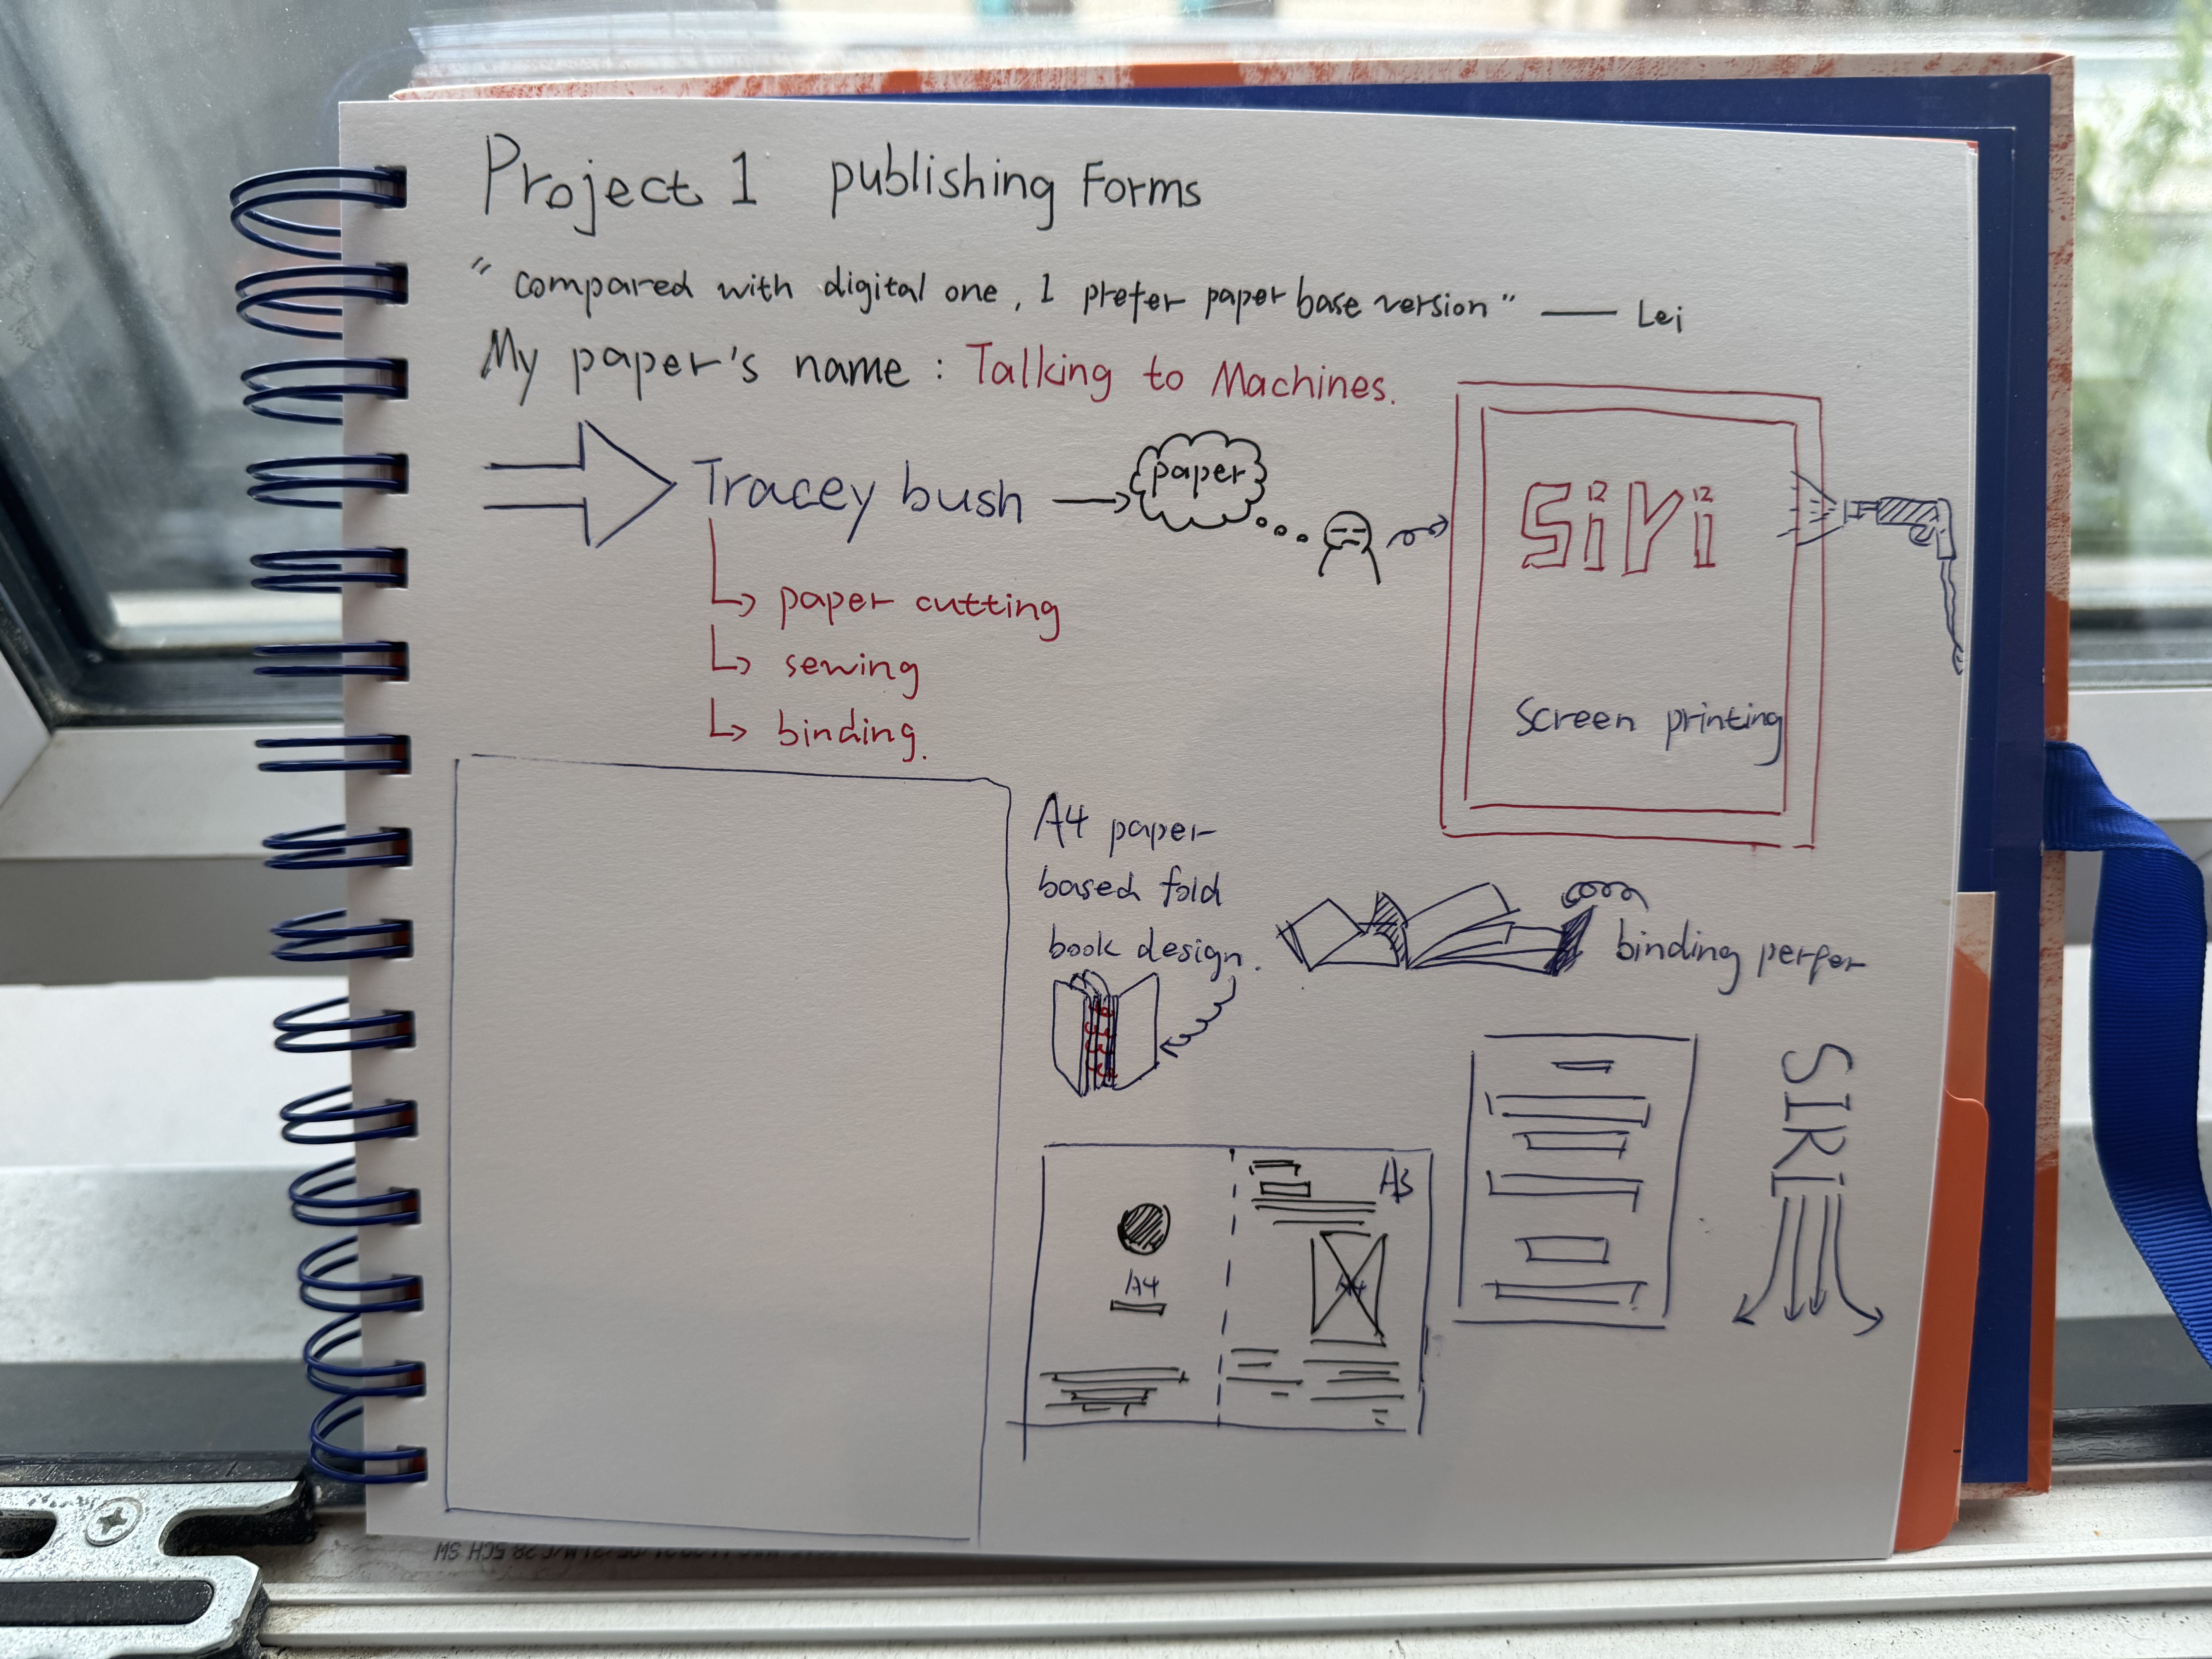 Project 1 publishing Forms
"compared with digital one, I prefer paper base version" — Lei
My paper's name : Talking to Machines.
Tracey bush
paper
paper cutting
sewing
binding.
Screen printing
A4 paper
based fold
book design.
binding perfer
SIRI
A3
A4
A4